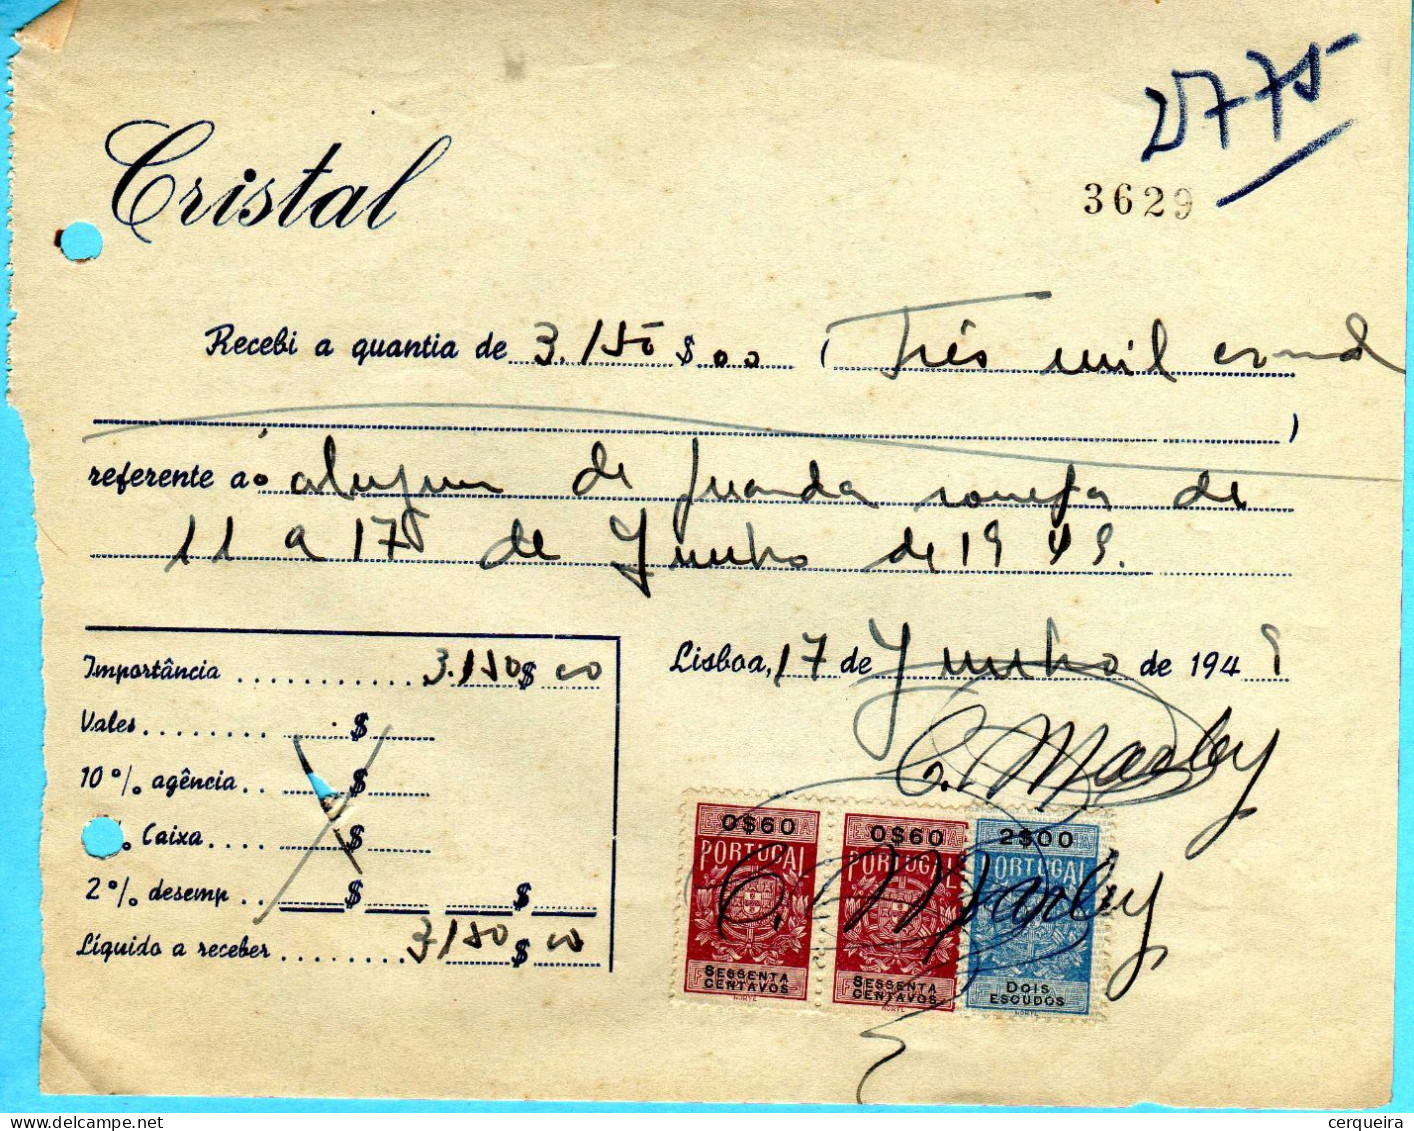 2775
Cristal
3629
Recebi a quantia de 3.150 $ 00 ( Três mil
)
referente a o de de
11 a 17 de Junho de 1949.
Importância ............ 3.150 $ 00
Vales ........ $
10 % agência .. $
% Caixa .... $
2 % desemp .. $ $
Líquido a receber ........ 3150 $ 00
Lisboa, 17 de Junho de 1949
C. Marby
0$60 0$60 2$00
PORTUGAL PORTUGAL PORTUGAL
C. Marby
SESSENTA CENTAVOS SESSENTA CENTAVOS DOIS ESCUDOS
www.delcampe.net
cerqueira